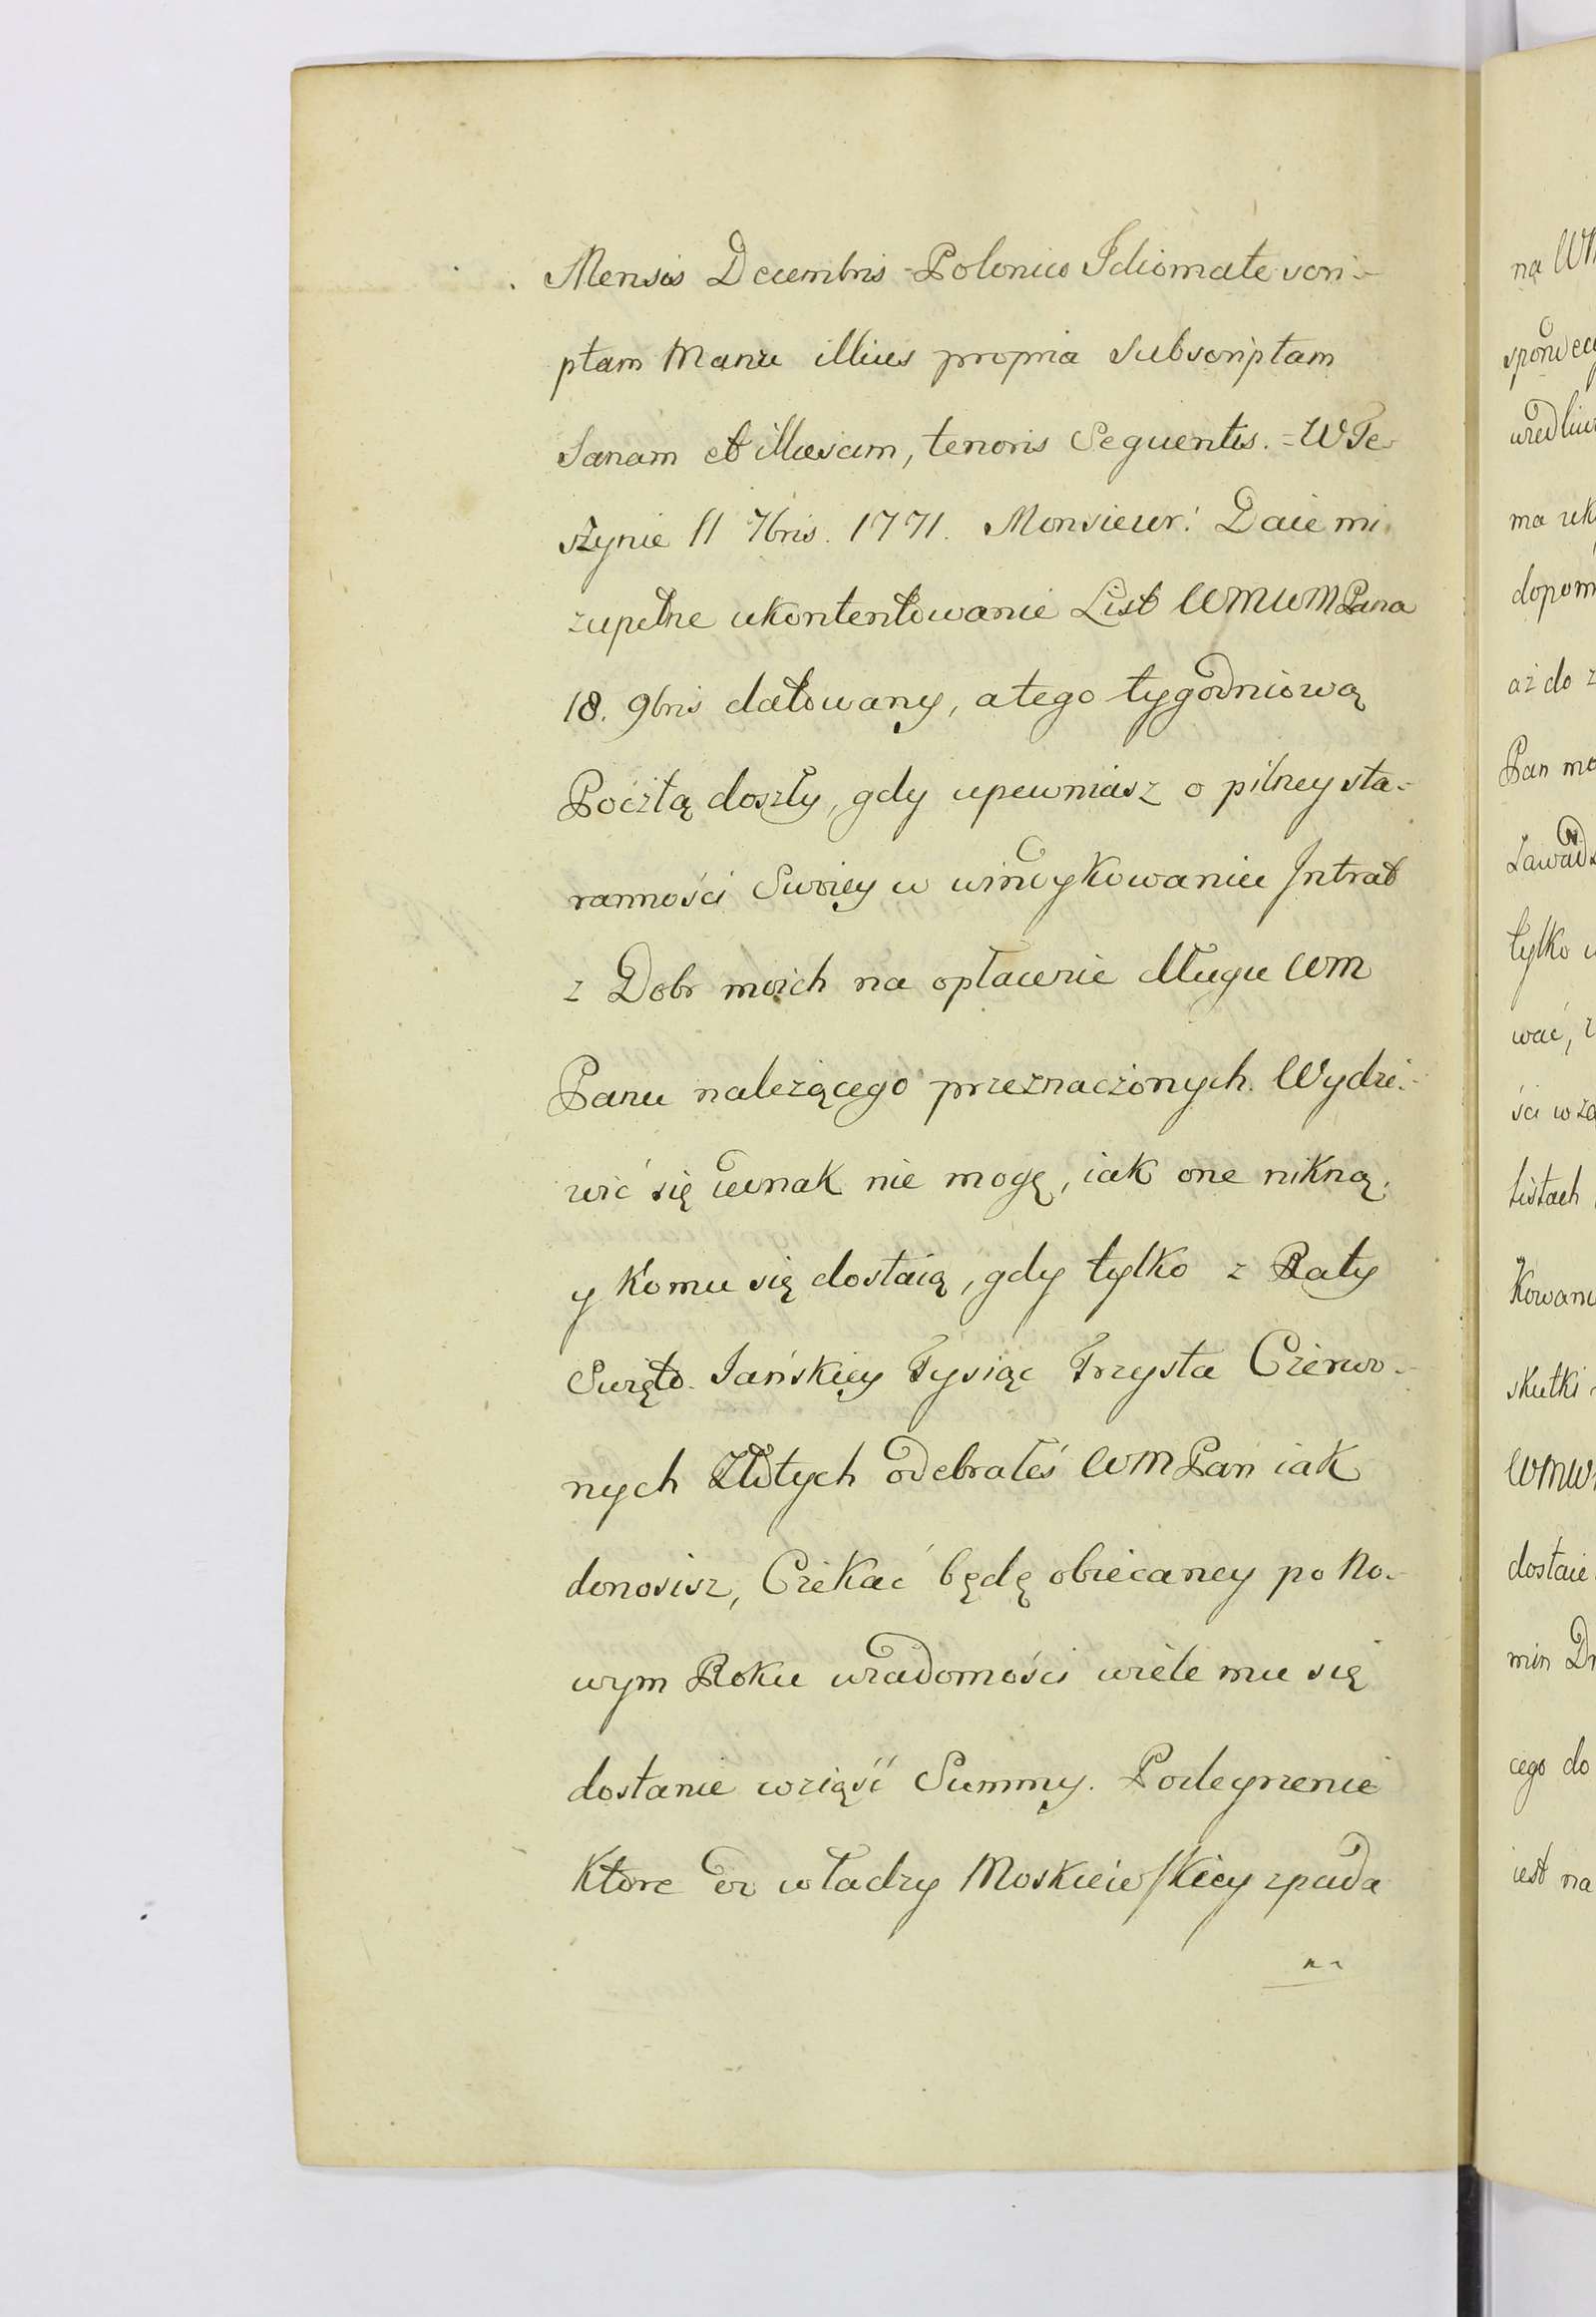 Mensis Decembris Polonico Idiomate scri-
ptam Manu illius propria Subscriptam
Sanam et illaesam, tenoris Sequentis. = W Te-
szynie 11 Xbris. 1771. Monsieur! Daie mi
zupełne ukontentowanie List WMWMPana
18. 9bris datowany, a tego tygodniową
Pocztą doszły, gdy upewniasz o pilney sta-
ranności Swoiey w windykowaniu Intrat
z Dobr moich na opłacenie długu WM
Panu należącego przeznaczonych. Wydzi-
wić się iednak nie mogę, iak one nikną,
y komu się dostaią, gdy tylko z Raty
Swięto-Jańskiey Tysiąc Trzysta Czerwo-
nych Złotych odebrałeś WMPan iak
donosisz, Czekać będę obiecaney po No-
wym Roku wiadomości wiele mu się
dostanie wziąść Summy. Podeyrzenie
Ktore od władzy Moskiewskiey spada
na
na WM
dopom
aż do
Pan mo
tylko
wać,
listach
Kowani
skutki
WMW
dostaie
min
cego do
iest na